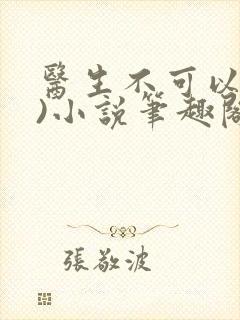 醫生不可以
)小說筆趣閣
張敬波